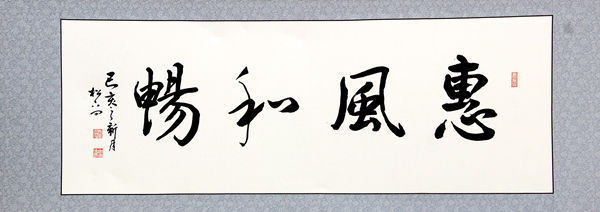 惠風和暢
己亥之新月